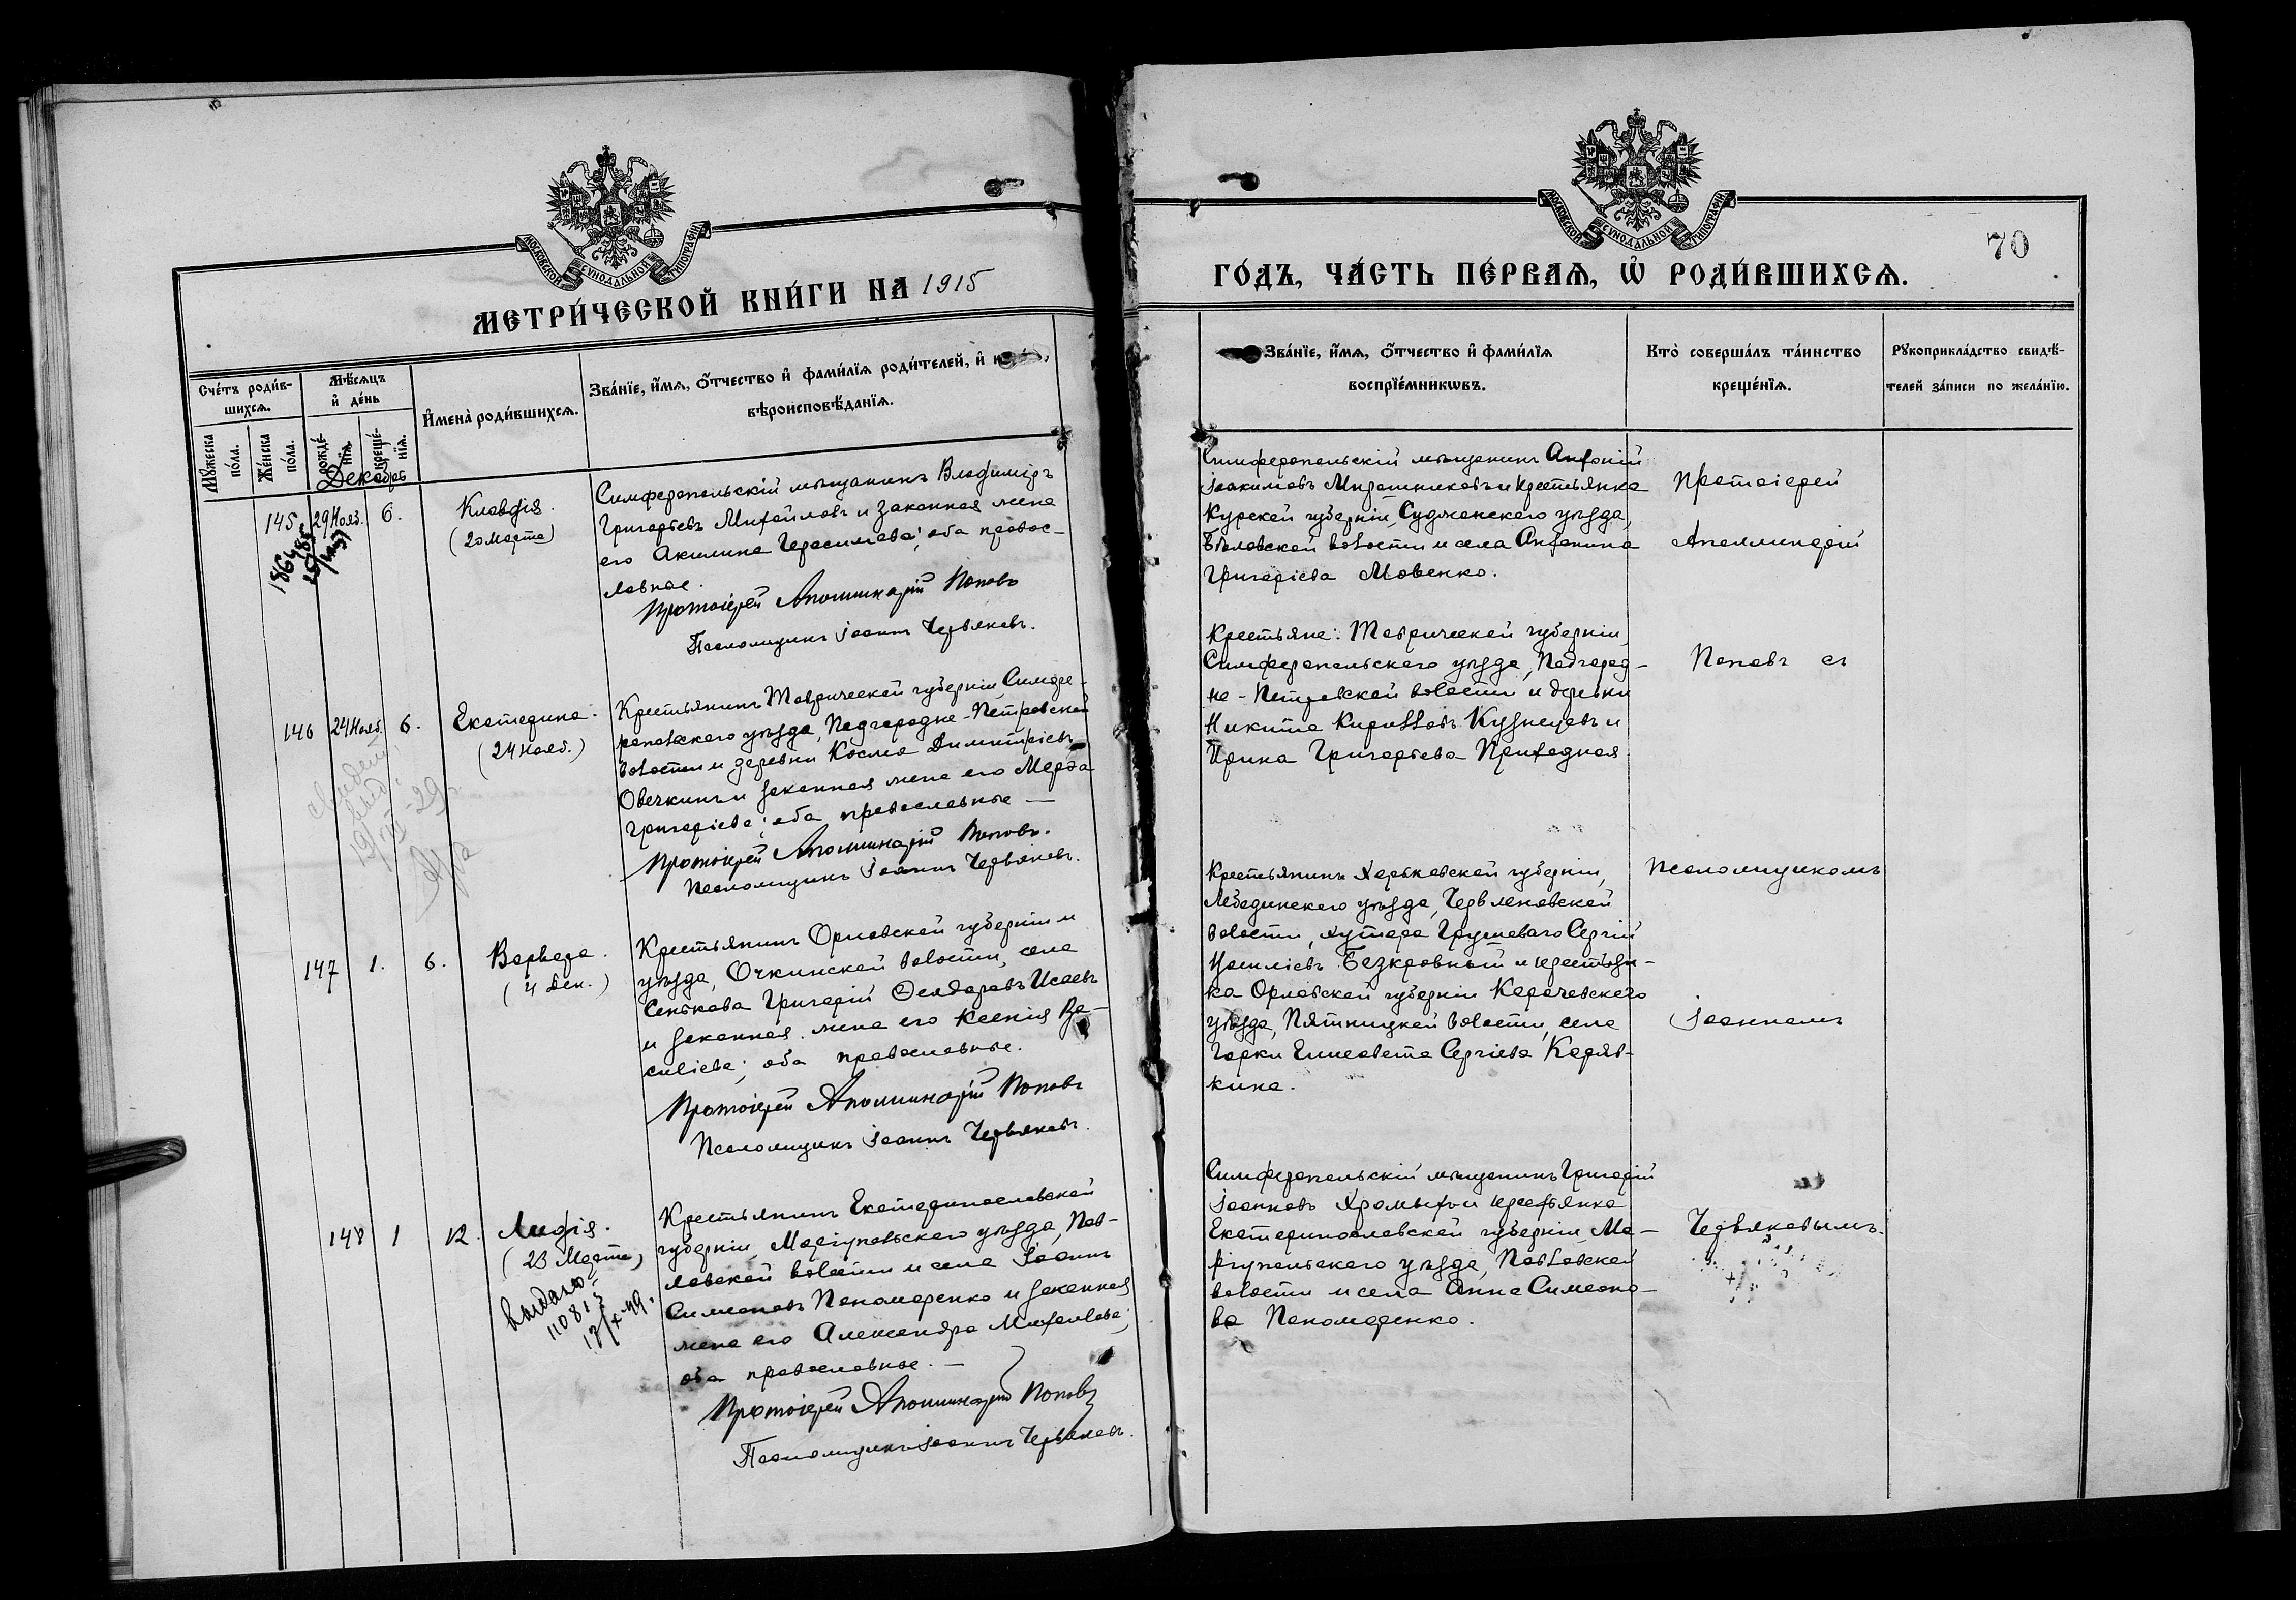 МОСКОВСКОЙ СѴНОДАЛЬНОЙ ТИПОГРАФІИ
МЕТРИ́ЧЕСКОЙ КНИ́ГИ НА 1915
Сче́тъ роди́в-
шихсѧ.
Мꙋ́жеска
по́ла.
Же́нска
по́ла.
Мѣ́сѧцъ
и҆ де́нь
рожде́-
нїѧ.
креще́-
нїѧ.
И҆мена̀ роди́вшихсѧ.
Зва́нїе, и҆́мѧ, ѻ҆́тчество и҆ фами́лїѧ роди́телей, и҆
вѣроисповѣ́данїѧ.
Декабрь
145 29 Нояб. 6.
Клавдія.
(20 Марта)
Симферопольскій мѣщанинъ Владиміръ
Григорьевъ Михайловъ и законная жена
его Акилина Герасимова; оба правос-
лавные.
Протоіерей Аполлинарій Поповъ
Псаломщикъ Іоаннъ Червяковъ.
146 24 Нояб. 6.
Екатерина.
(24 нояб.)
Крестьянинъ Таврической губерніи, Симфе-
ропольскаго уѣзда, Подгородне-Петровской
волости и деревни Косма Димитріевъ
Овечкинъ и законная жена его Марѳа
Григоріева; оба православные —
Протоіерей Аполлинарій Поповъ.
Псаломщикъ Іоаннъ Червяковъ.
147 1. 6.
Варвара.
(4 Дек.)
Крестьянинъ Орловской губерніи и
уѣзда, Очкинской волости, села
Сенькова Григорій Ѳеодоровъ Исаевъ
и законная жена его Ксенія Ва-
силіева; оба православные.
Протоіерей Аполлинарій Поповъ
Псаломщикъ Іоаннъ Червяковъ.
148 1 12.
Лидія.
(23 Марта)
выдано
11081
Крестьянинъ Екатеринославской
губерніи, Маріупольскаго уѣзда, Пав-
ловской волости и села Іоаннъ
Симеоновъ Пономаренко и законная
жена его Александра Михаилова;
оба православные. —
Протоіерей Аполлинарій Поповъ
Псаломщикъ Іоаннъ Червяковъ.
МОСКОВСКОЙ СѴНОДАЛЬНОЙ ТИПОГРАФІИ
70
ГО́ДЪ, ЧА́СТЬ ПЕ́РВАѦ, Ѡ҆ РОДИ́ВШИХСѦ.
Зва́нїе, и҆́мѧ, ѻ҆́тчество и҆ фами́лїѧ
воспрїе́мникѡвъ.
Кто̀ соверша́лъ та́инство
креще́нїѧ.
Рꙋкоприкла́дство свидѣ́-
телей за́писи по жела́нїю.
Симферопольскій мѣщанинъ Антоній
Іоакимовъ Мирошниковъ и крестьянка
Курской губерніи, Суджанскаго уѣзда,
Бѣловской волости и села Антонина
Григоріева Мовенко.
Крестьяне: Таврической губерніи,
Симферопольскаго уѣзда, Подгород-
не-Петровской волости и деревни
Никита Кирилловъ Кузнецовъ и
Ирина Григорьева Приходная
Крестьянинъ Харьковской губерніи,
Лебединскаго уѣзда, Червленовской
волости, хутора Грушеваго Сергій
Безкровный и крестьян-
ка Орловской губерніи Карачевскаго
уѣзда, Пятницкой волости, села
Горки Елисавета Сергіева Коряв-
кина.
Симферопольскій мѣщанинъ Григорій
Іоанновъ Хромыхъ и крестьянка
Екатеринославской губерніи, Ма-
ріупольскаго уѣзда, Павловской
волости и села Анна Симеоно-
ва Пономаренко.
Протоіерей
Аполлинарій
Поповъ съ
псаломщикомъ
Іоанномъ
Червяковымъ.